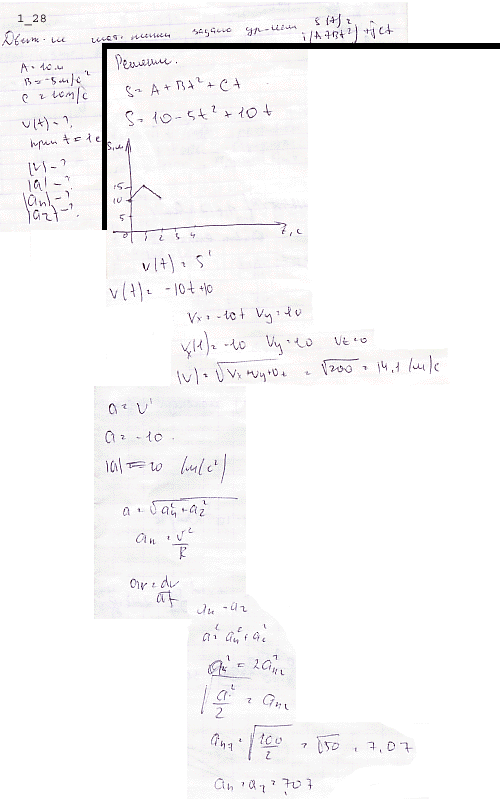 1_28
Движ-ие мат. точки задано ур-ием S(t) =
i(A+Bt²)+jCt
A = 10 м
B = -5 м/с²
C = 10 м/с
V(t) = ?
при t = 1 с
|V| - ?
|a| - ?
|an| - ?
|aτ| - ?
Решение.
S = A + Bt² + Ct
S = 10 - 5t² + 10t
S, м
15
10
5
0 1 2 3 4
t, с
V(t) = S'
V(t) = -10t+10
Vx = -10t Vy = 10
Vx(1) = -10 Vy = 10 Vz = 0
|V| = √Vx+Vy+Vz = √200 = 14,1 (м/с)
a = V'
a = -10.
|a| = 10 (м/с²)
a = √an²+aτ²
an = v²/R
aτ = dv/dt
an = aτ
a² = an²+aτ²
a² = 2an²
√a²/2 = an
an = √100/2 = √50 = 7,07
an = aτ = 7,07